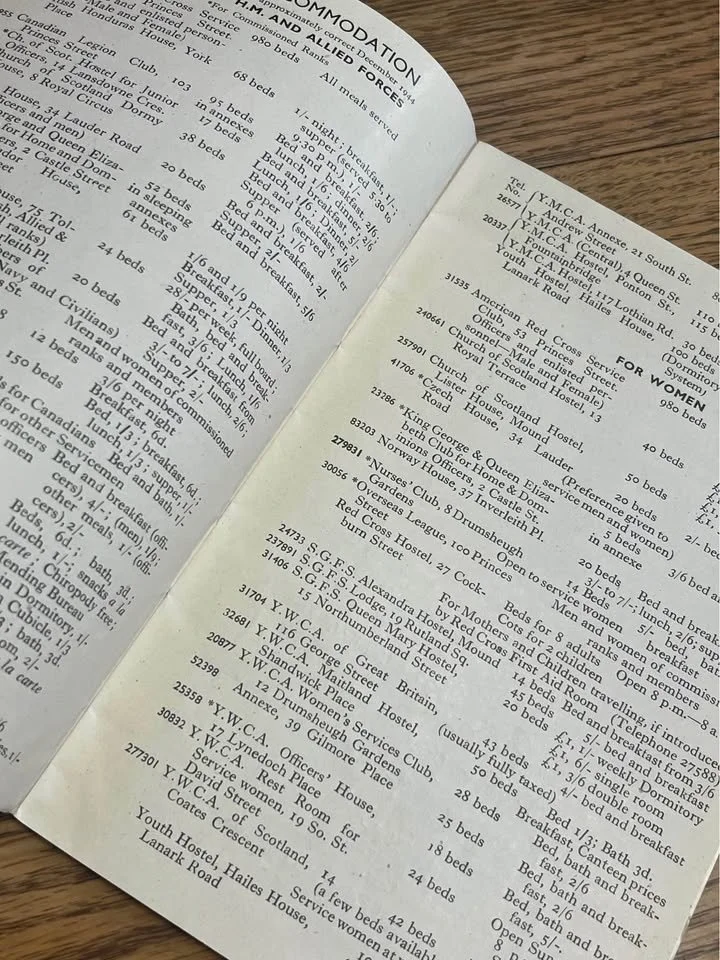 COMMODATION
approximately correct December 1944
H.M. AND ALLIED FORCES
*For Commissioned Ranks
All meals served
Cross Service
Princes Street
Male and Female)
enlisted person-
980 beds
Honduras House, York
Place
Canadian Legion Club, 103
Princes Street
68 beds
*Ch. of Scot. Hostel for Junior
Officers, 14 Lansdowne Cres.
95 beds
in annexes
Church of Scotland Dormy
House, 8 Royal Circus
17 beds
House, 34 Lauder Road
38 beds
(officers and men)
George and Queen Eliza-
for Home and Dom-
2 Castle Street
20 beds
House,
52 beds
in sleeping
annexes
61 beds
75 Tol-
Allied &
ranks)
Inverleith Pl.
24 beds
Navy and Civilians)
20 beds
12 beds
150 beds
1/- night; breakfast, 1/-;
supper (served 5.30 to
9.30 p.m.), 1/-
Bed and breakfast, 5/-
lunch, 1/6; dinner, 2/6
Bed and breakfast, 5/-
Lunch, 1/6; Dinner, 2/-
Bed and breakfast, 4/6
Supper (served after
6 p.m.), 1/6
Bed and breakfast, 2/-
Supper, 2/-
Bed and breakfast, 5/6
1/6 and 1/9 per night
Breakfast, 1/-, Dinner, 1/3
Supper, 1/3
28/- per week, full board;
Bed, bath, and break-
fast, 3/6; Lunch, 1/6
Bed and breakfast from
3/- to 7/-; lunch, 2/6;
Supper, 2/-
Men and women of commissioned
ranks and members
3/6 per night
Breakfast, 6d.
Bed, 1/3; breakfast, 6d.;
lunch, 1/3; supper, 1/-
for Canadians
Bed and bath, 1/-
for other Servicemen
officers
Bed and breakfast (offi-
cers), 4/-; (men), 1/6;
men
other meals, 1/- (offi-
cers), 2/-
Beds, 6d.; bath, 3d.;
lunch, 1/-; snacks a la
carte; Chiropody free;
Mending Bureau
in Dormitory, 1/-
Cubicle, 1/3
bath, 3d.
2/-
la carte
Tel.
No.
26577 Y.M.C.A. Annexe, 21 South St.
Andrew Street
Y.M.C.A. (Central), 4 Queen St.
20337 Y.M.C.A. Hostel, Ponton St.,
Fountainbridge
Y.M.C.A. Hostel, 117 Lothian Rd.
Youth Hostel, Hailes House,
Lanark Road
110
115 b
30 beds
100 beds
(Dormitory
System)
FOR WOMEN
31535 American Red Cross Service
Club, 53 Princes Street.
Officers and enlisted per-
sonnel—Male and Female)
980 beds
240661 Church of Scotland Hostel, 13
Royal Terrace
40 beds
257901 Church of Scotland Hostel,
Lister House, Mound
50 beds
41706 *Czech House, 34 Lauder
Road
(Preference given to
service men and women)
20 beds
23286 *King George & Queen Eliza-
beth Club for Home & Dom-
inions Officers, 2 Castle St.
5 beds
in annexe
83203 Norway House, 37 Inverleith Pl.
20 beds
Open to service women
279831 *Nurses' Club, 8 Drumsheugh
Gardens
14 Beds
30056 *Overseas League, 100 Princes
Street
3/- to 7/-; lunch, 2/6; sup
Men and women of commiss
ranks and members
Red Cross Hostel, 27 Cock-
burn Street
Beds for 8 adults
Cots for 2 children
Open 8 p.m.—8 a
For Mothers and Children travelling, if introduced
by Red Cross First Aid Room (Telephone 27588
24733 S.G.F.S. Alexandra Hostel, Mound
14 beds
Bed and breakfast from 3/6
237891 S.G.F.S. Lodge, 19 Rutland Sq.
45 beds
5/- bed and breakfast
31406 S.G.F.S. Queen Mary Hostel,
15 Northumberland Street
20 beds
£1, 1/- weekly Dormitory
£1, 6/- single room
£1, 3/6 double room
31704 Y.W.C.A. of Great Britain,
116 George Street
43 beds
(usually fully taxed)
4/- bed and breakfast
32681 Y.W.C.A. Maitland Hostel,
Shandwick Place
50 beds
Bed 1/3; Bath 3d.
20877 Y.W.C.A. Women's Services Club,
12 Drumsheugh Gardens
28 beds
Breakfast, Canteen prices
52398 Annexe, 39 Gilmore Place
25 beds
Bed, bath and break-
fast, 2/6
25358 *Y.W.C.A. Officers' House,
17 Lynedoch Place
18 beds
Bed, bath and break-
fast, 2/6
30832 Y.W.C.A. Rest Room for
Service women, 19 So. St.
David Street
24 beds
Bed, bath and bre
fast, 5/-
277301 Y.W.C.A. of Scotland, 14
Coates Crescent
42 beds
(a few beds availabl
Service women at
Youth Hostel, Hailes House,
Lanark Road